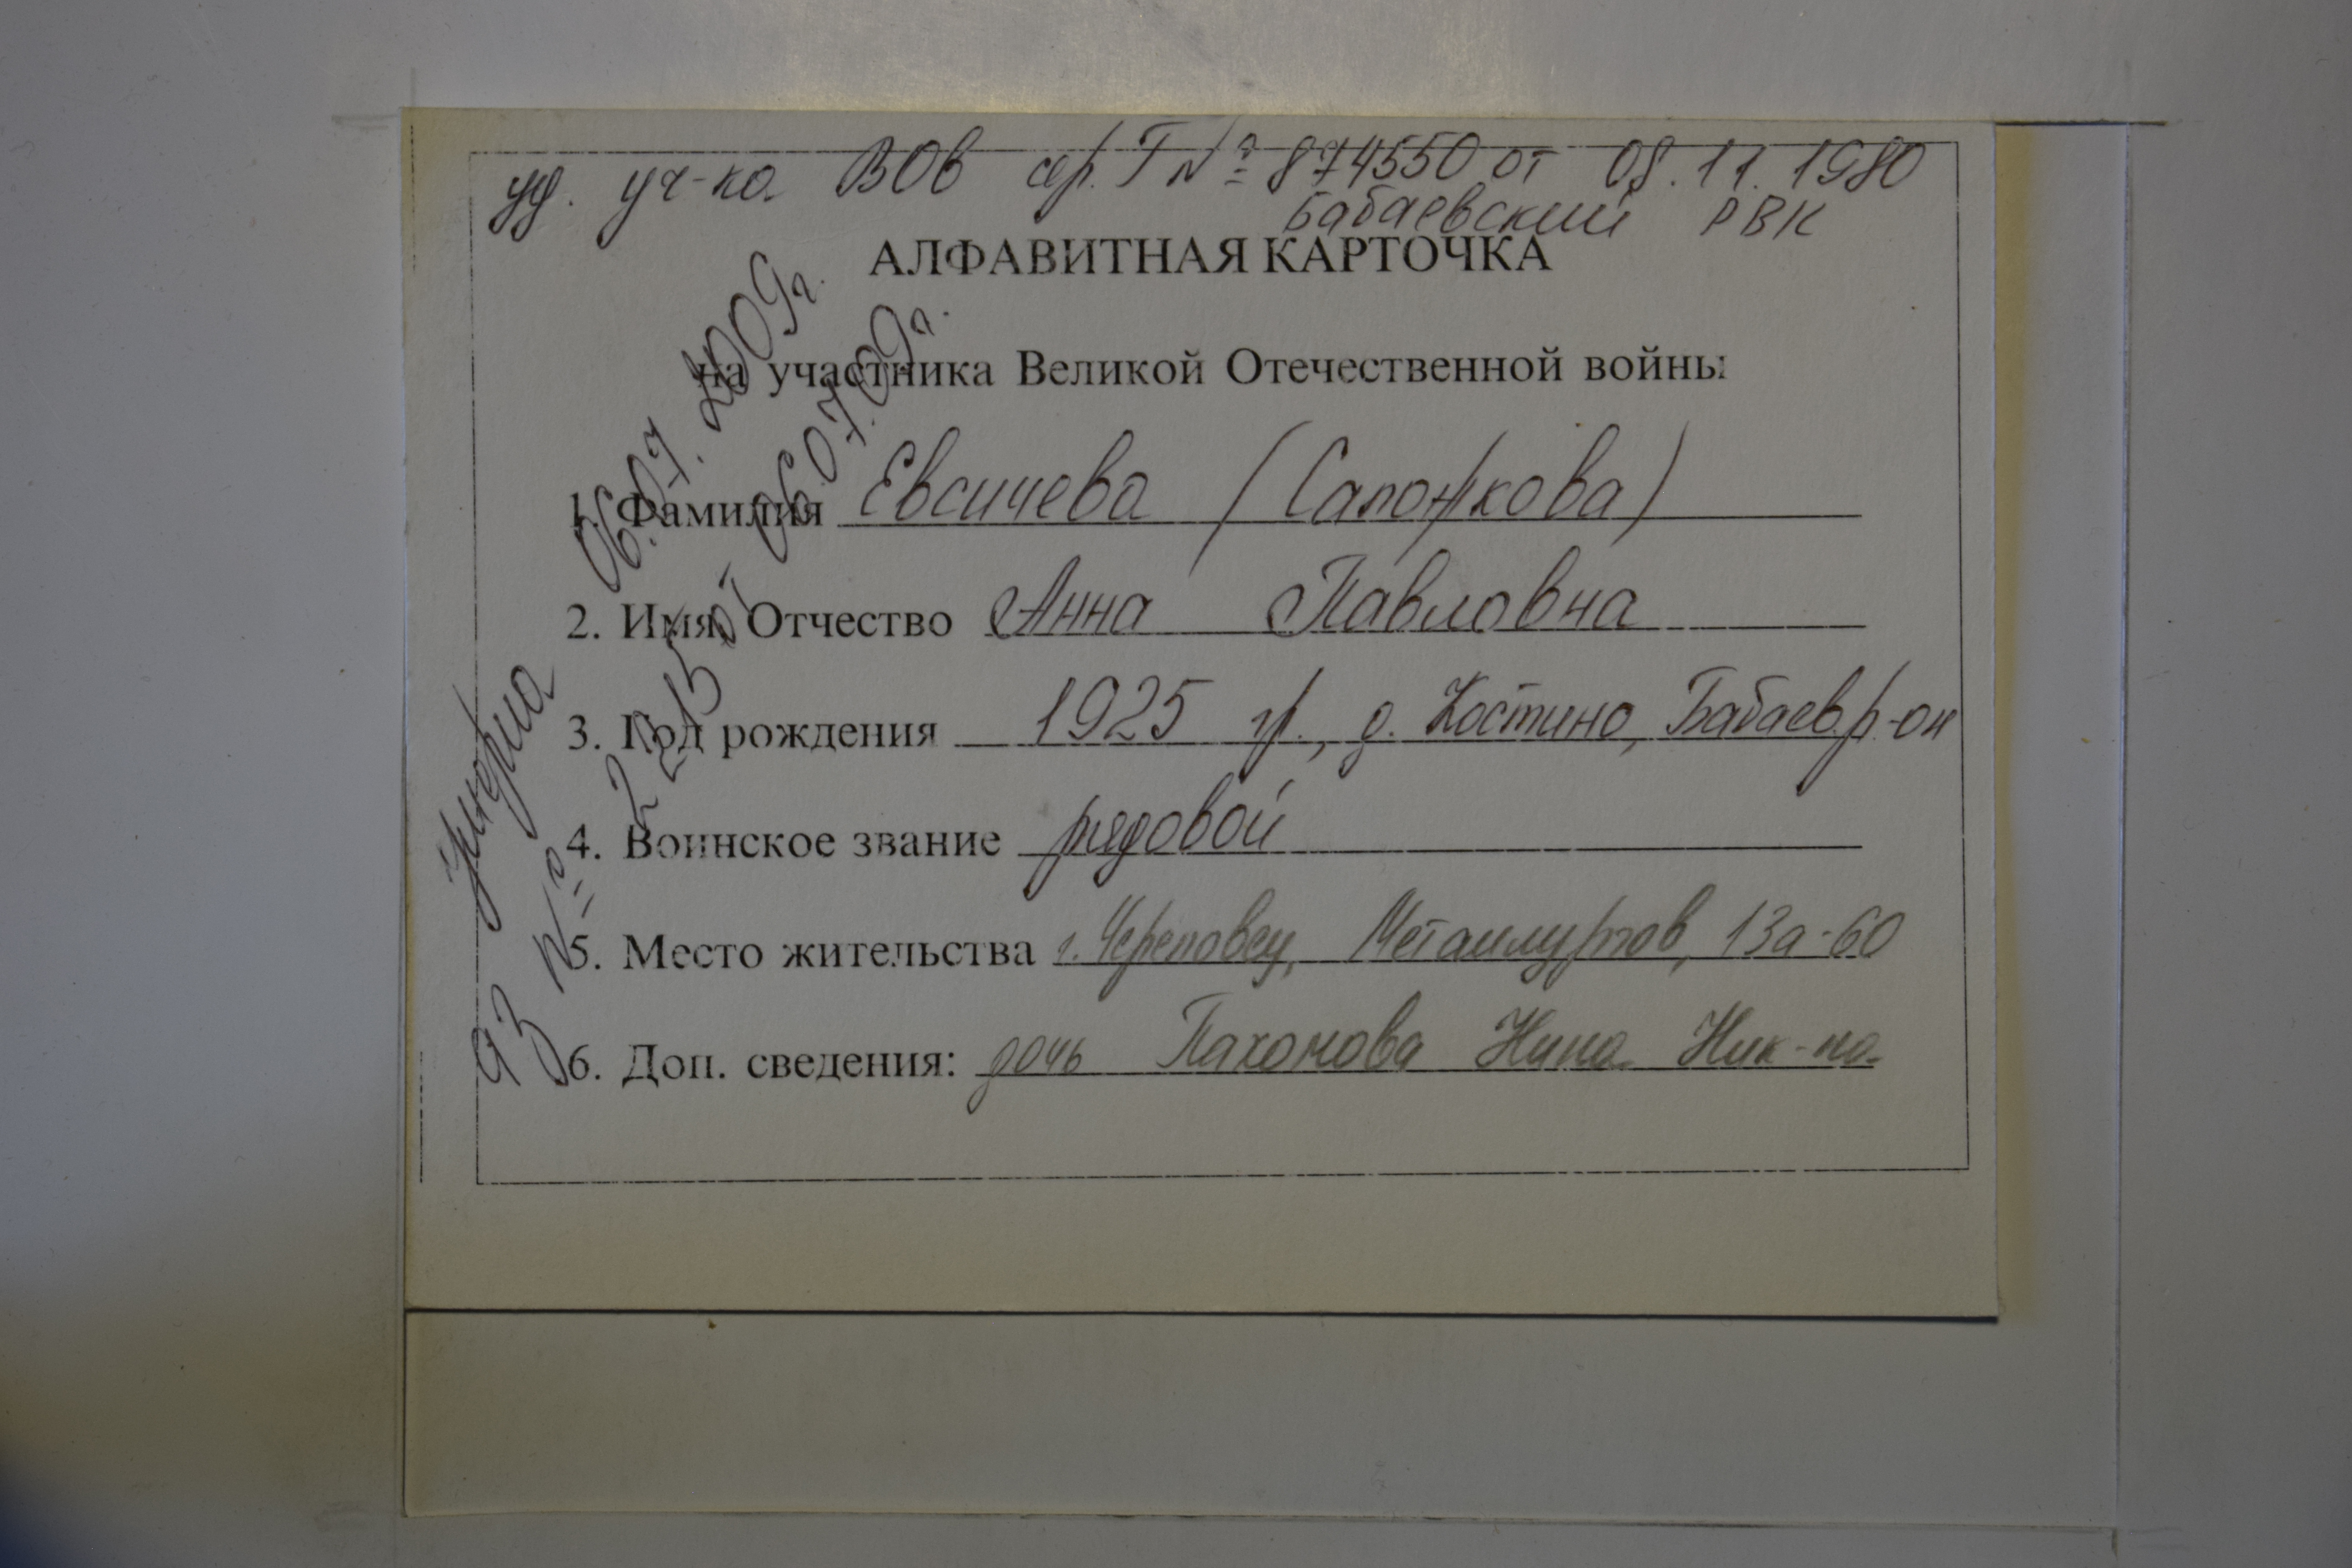 уд. уч-ка ВОв сер. Г № 874550 от 08.11.1980
Бабаевский РВК
АЛФАВИТНАЯ КАРТОЧКА
на участника Великой Отечественной войны
1. Фамилия Евсичева (Сапожкова)
2. Имя, Отчество Анна Павловна
3. Год рождения 1925 гр., д. Костино, Бабаев. р-он
4. Воинское звание рядовой
5. Место жительства г. Череповец, Металлургов, 13а-60
6. Доп. сведения: дочь Пахомова Нина Ник-на
умерла 06.07.2009г.
АЗ № 2215 от 06.07.09г.